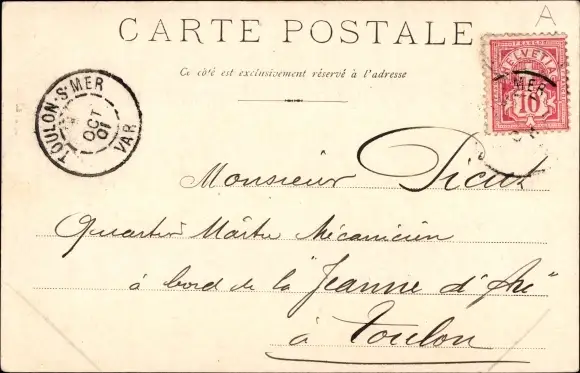 A
CARTE POSTALE
Ce côté est exclusivement réservé à l'adresse
FRANCO
HELVETIA
10
MER
TOULON-S-MER
OCT
01
VAR
Monsieur
Quartier Maître Mécanicien
à bord de la "Jeanne d'Arc"
à Toulon